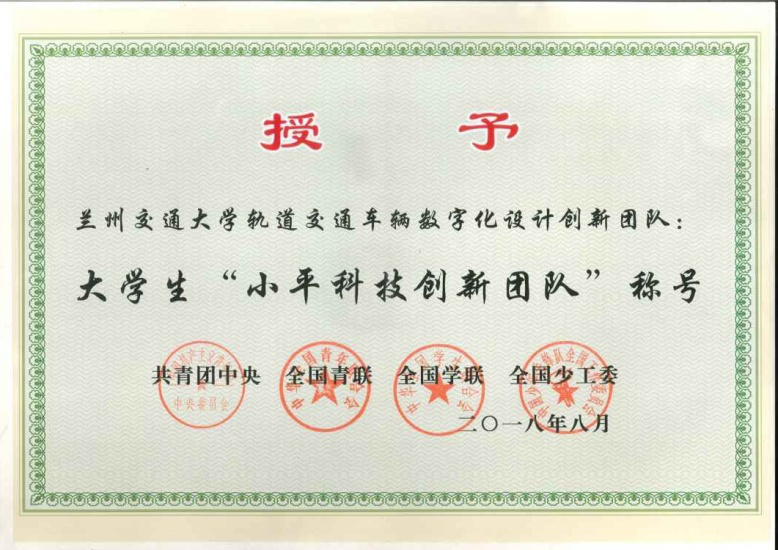 授 予
兰州交通大学轨道交通车辆数字化设计创新团队：
大学生“小平科技创新团队”称号
共青团中央 全国青联 全国学联 全国少工委
二〇一八年八月
中央委员会